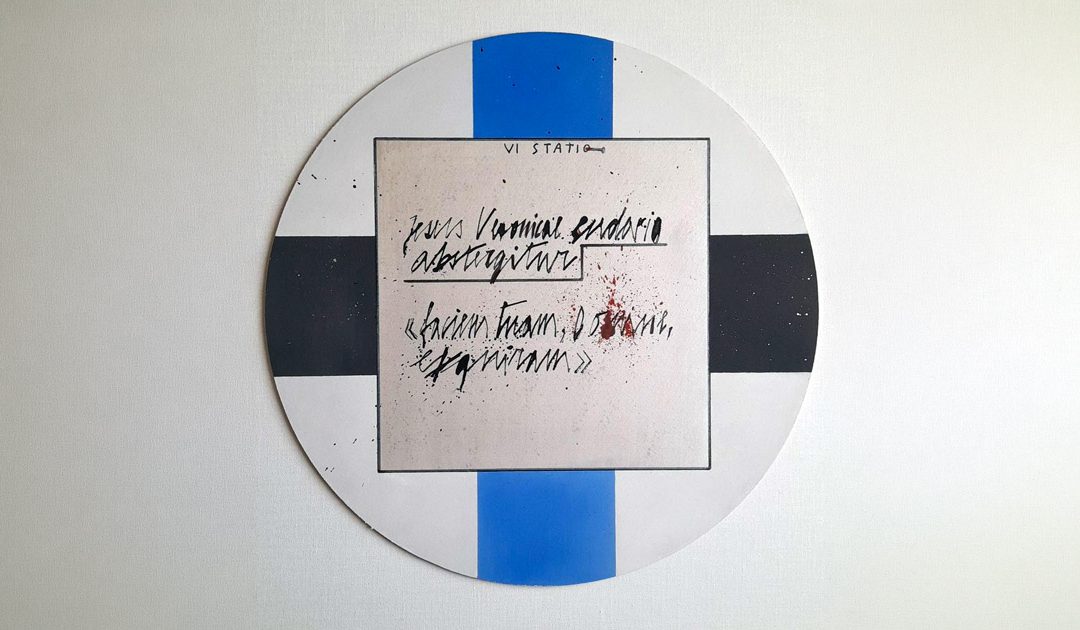 VI STATIO
Jesus Veronicae sudario
abstergitur
«faciem tuam, Domine,
exquiram»